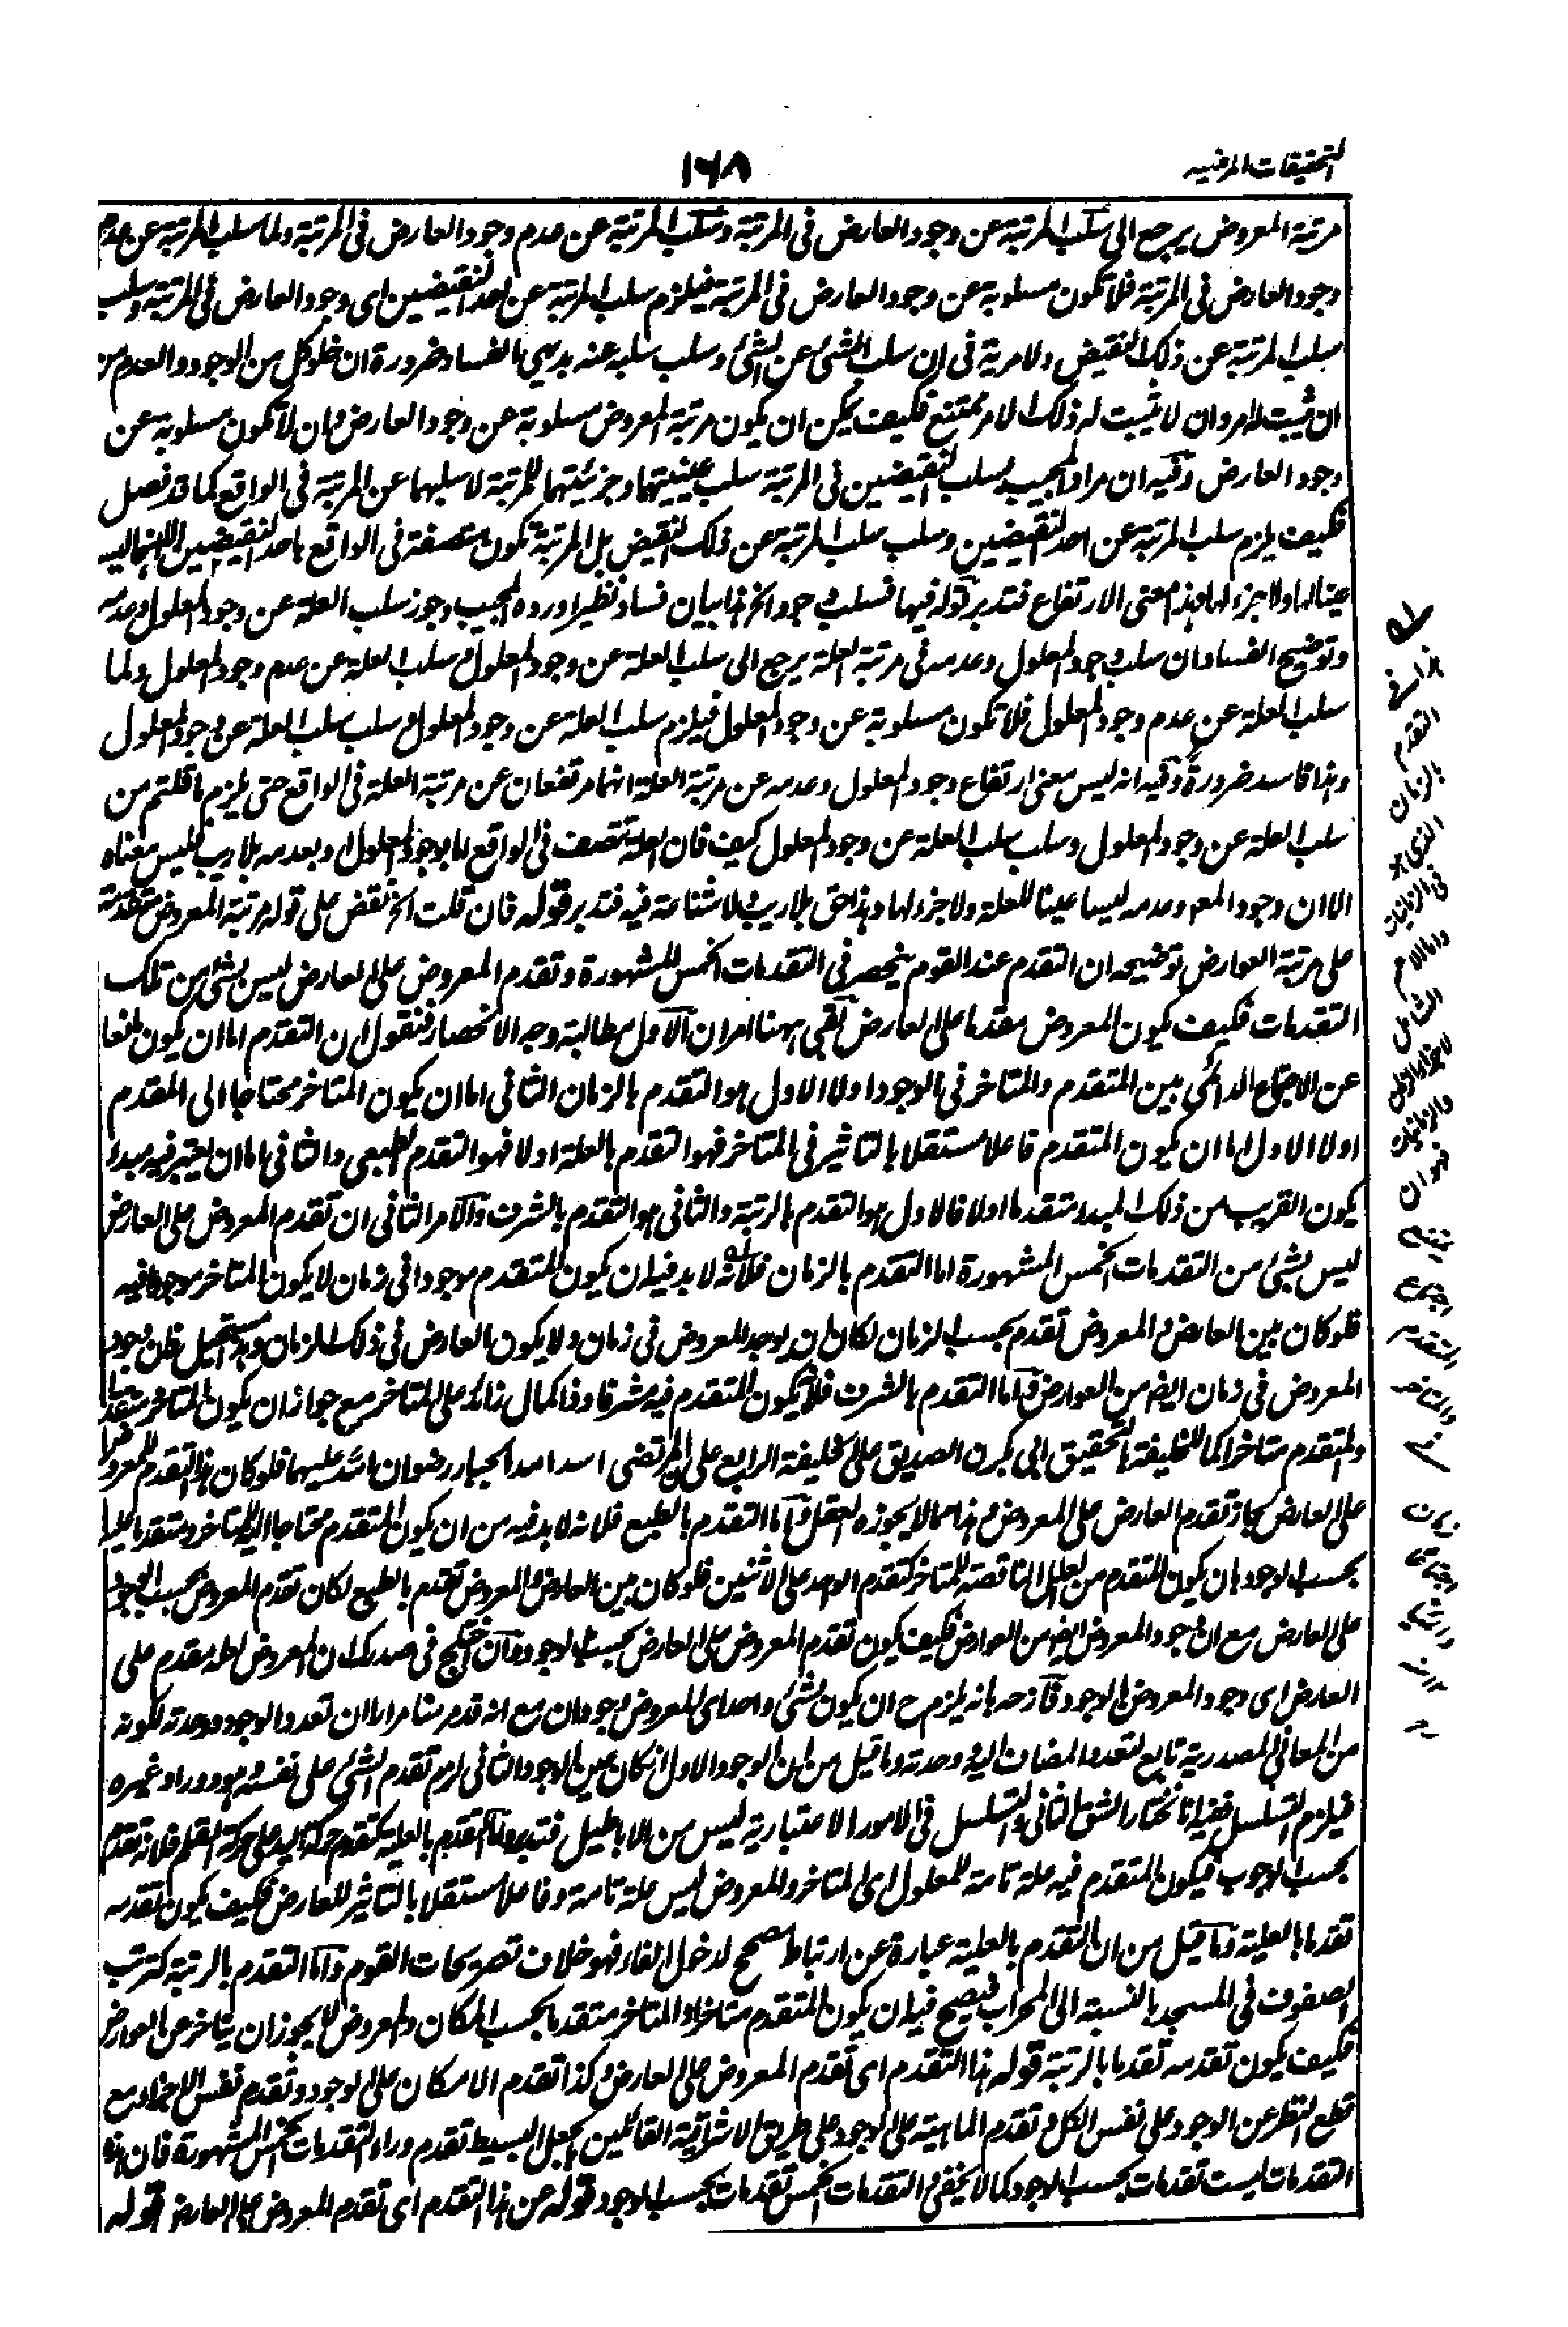 التحقيقات المرضيه
١٦٨
مرتبة المعروض يرجع الى سلب المرتبة عن وجود العارض فى المرتبة وسلب المرتبة عن عدم وجود العارض فى المرتبة ولما سلب المرتبة عن عدم
وجود العارض فى المرتبة فلا تكون مسلوبة عن وجود العارض فى المرتبة فيلزم سلب المرتبة عن احد النقيضين اى وجود العارض فى المرتبة وسلب
سلب المرتبة عن ذلك النقيض ولا مرية فى ان سلب الشئ عن الشئ وسلب سلبه عنه بديهى الفساد ضرورة ان خلو كل من الوجود والعدم من
ان يثبت له امر وان لا يثبت له ذلك الامر ممتنع فكيف يمكن ان يكون مرتبة المعروض مسلوبة عن وجود العارض وان لا تكون مسلوبة عن
وجود العارض وفيه ان مراد المجيب بسلب النقيضين فى المرتبة سلب عينيتهما وجزئيتهما للمرتبة لا سلبهما عن المرتبة فى الواقع كما قد فصل
فكيف يلزم سلب المرتبة عن احد النقيضين وسلب سلب المرتبة عن ذلك النقيض بل المرتبة تكون متصفة فى الواقع باحد النقيضين الا انهما ليسا
عينا لها ولا جزءا لها وهذا معنى الارتفاع فتدبر قوله فيها فسلب وجود الخ هذا بيان فساد نظير اورده المجيب وجوز سلب العلة عن وجود المعلول وعدمه
وتوضيح الفساد ان سلب وجود المعلول وعدمه فى مرتبة العلة يرجع الى سلب العلة عن وجود المعلول وسلب العلة عن عدم وجود المعلول ولما
سلب العلة عن عدم وجود المعلول فلا تكون مسلوبة عن وجود المعلول فيلزم سلب العلة عن وجود المعلول وسلب سلب العلة عن وجود المعلول
وهذا فاسد ضرورة وفيه انه ليس معنى ارتفاع وجود المعلول وعدمه عن مرتبة العلة انهما مرتفعان عن مرتبة العلة فى الواقع حتى يلزم ما قلتم من
سلب العلة عن وجود المعلول وسلب سلب العلة عن وجود المعلول كيف فان العلة تتصف فى الواقع اما بوجود المعلول او بعدمه بلا ريب بل ليس معناه
الا ان وجود المع وعدمه ليسا عينا للعلة ولا جزء لها وهذا حق بلا ريب ولا شناعة فيه فتدبر قوله فان قلت الخ نقض على قوله مرتبة المعروض متقدمة
على مرتبة العوارض توضيحه ان التقدم عند القوم ينحصر فى التقدمات الخمس المشهورة وتقدم المعروض على العارض ليس بشئ من تلك
التقدمات فكيف يكون المعروض مقدما على العارض بقى ههنا امران الاول مطالبة وجه الانحصار فنقول ان التقدم اما ان يكون مانعا
عن الاجتماع الدائمى بين المتقدم والمتاخر فى الوجود اولا الاول هو التقدم بالزمان الثانى اما ان يكون المتاخر محتاجا الى المقدم
اولا الاول اما ان يكون المتقدم فاعلا مستقلا بالتاثير فى المتاخر فهو التقدم بالعلة اولا فهو التقدم الطبعى والثانى اما ان يعتبر فيه مبدء
يكون القريب من ذلك المبدء متقدما اولا فالاول هو التقدم بالرتبة والثانى هو التقدم بالشرف والامر الثانى ان تقدم المعروض على العارض
ليس بشئ من التقدمات الخمس المشهورة اما التقدم بالزمان فلانه لا بد فيه ان يكون المتقدم موجودا فى زمان لا يكون المتاخر موجودا فيه
فلو كان بين العارض والمعروض تقدم بحسب الزمان لكان ان يوجد المعروض فى زمان ولا يكون العارض فى ذلك الزمان وهو مستحيل فان وجود
المعروض فى زمان ايض من العوارض واما التقدم بالشرف فلانه يكون المتقدم فيه مشرفا وذا كمال زائد على المتاخر مع جواز ان يكون المتاخر متقدما
والمتقدم متاخرا كما للخليفة بالتحقيق ابى بكرن الصديق على الخليفة الرابع على ن المرتضى اسد الله الجبار رضوان الله عليهما فلو كان هذا التقدم للمعروض
على العارض لجاز تقدم العارض على المعروض وهذا مما لا يجوزه العقل واما التقدم بالطبع فلانه لا بد فيه من ان يكون المتقدم محتاجا اليه للمتاخر ومتقدما عليه
بحسب الوجود بان يكون المتقدم من العلل الناقصة للمتاخر كتقدم الواحد على الاثنين فلو كان بين العارض والمعروض تقدم بالطبع لكان تقدم المعروض بحسب الوجود
على العارض مع ان وجود المعروض ايضا من العوارض فكيف يكون تقدم المعروض على العارض بحسب الوجود وان اختلج فى صدرك ان المعروض لعله مقدم على
العارض اى وجود المعروض بالوجود فازحه بانه يلزم ح ان يكون لشئ واحد اى المعروض وجودان مع انه قد مر منا مرارا ان تعدد الوجود ووحدته لكونه
من المعانى المصدرية تابع لتعدد المضاف اليه ووحدته وما قيل من ان الوجود الاول ان كان عين الوجود الثانى لزم تقدم الشئ على نفسه وهو دور او غيره
فيلزم التسلسل ففيه انا نختار الشق الثانى والتسلسل فى الامور الاعتبارية ليس من الاباطيل فتدبر واما التقدم بالعلية كتقدم حركة اليد على حركة القلم فلانه تقدم
بحسب الوجوب فيكون المتقدم فيه علة تامة للمعلول اى المتاخر والمعروض ليس علة تامة وفاعلا مستقلا بالتاثير للعارض فكيف يكون تقدمه
تقدما بالعلية وما قيل من ان التقدم بالعلية عبارة عن ارتباط مصحح لدخول الفاء فهو خلاف تصريحات القوم واما التقدم بالرتبة كترتب
الصفوف فى المسجد بالنسبة الى المحراب فيصح فيه ان يكون المتقدم متاخرا والمتاخر متقدما بحسب المكان والمعروض لا يجوز ان يتاخر عن العوارض
فكيف يكون تقدمه تقدما بالرتبة قوله هذا التقدم اى تقدم المعروض على العارض وكذا تقدم الامكان على الوجود وتقدم نفس الاجزاء مع
قطع النظر عن الوجود على نفس الكل وتقدم الماهية على الوجود على طريق الاشراقية القائلين بالجعل البسيط تقدم وراء التقدمات الخمس المشهورة فان هذه
التقدمات ليست تقدمات بحسب الوجود كما لا يخفى والتقدمات الخمس تقدمات بحسب الوجود قوله عن هذا التقدم اى تقدم المعروض على العارض قوله
هذا فى
التقدم
بالزمان
الذى هو
فى الزمانيات